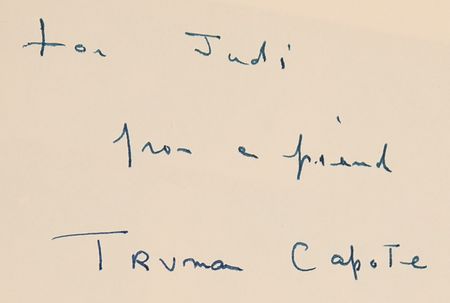 for Judi
from a friend
Truman Capote